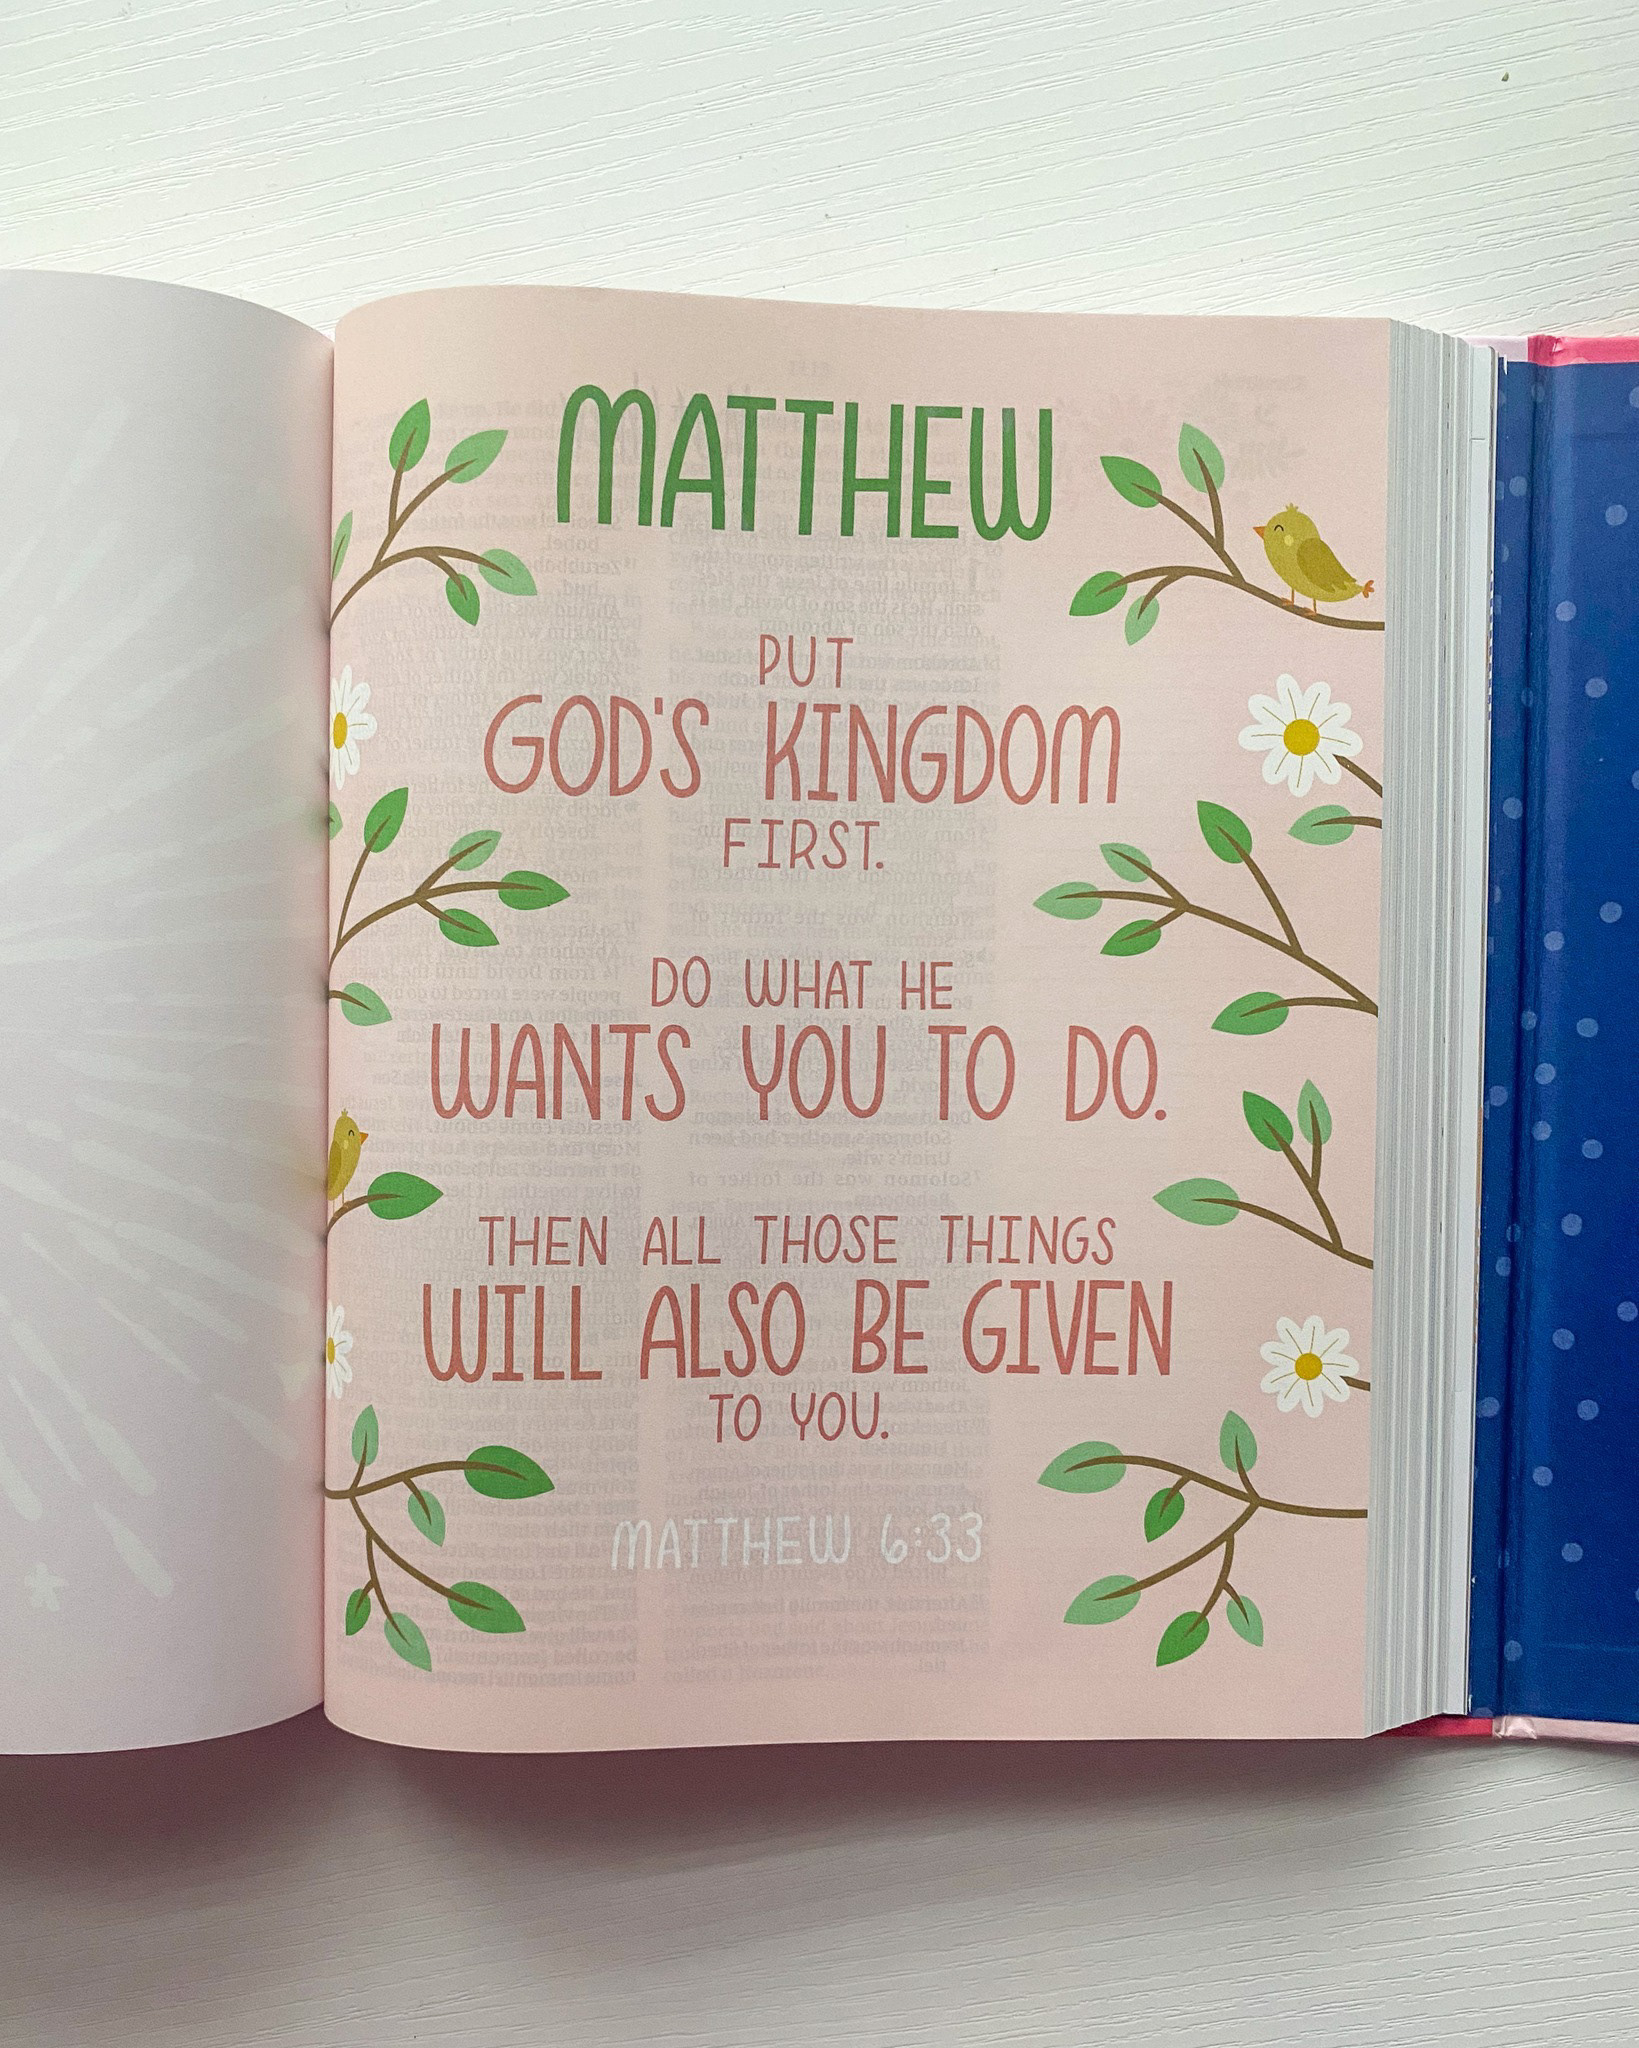 MATTHEW
PUT
GOD'S KINGDOM
FIRST.
DO WHAT HE
WANTS YOU TO DO.
THEN ALL THOSE THINGS
WILL ALSO BE GIVEN
TO YOU.
MATTHEW 6:33